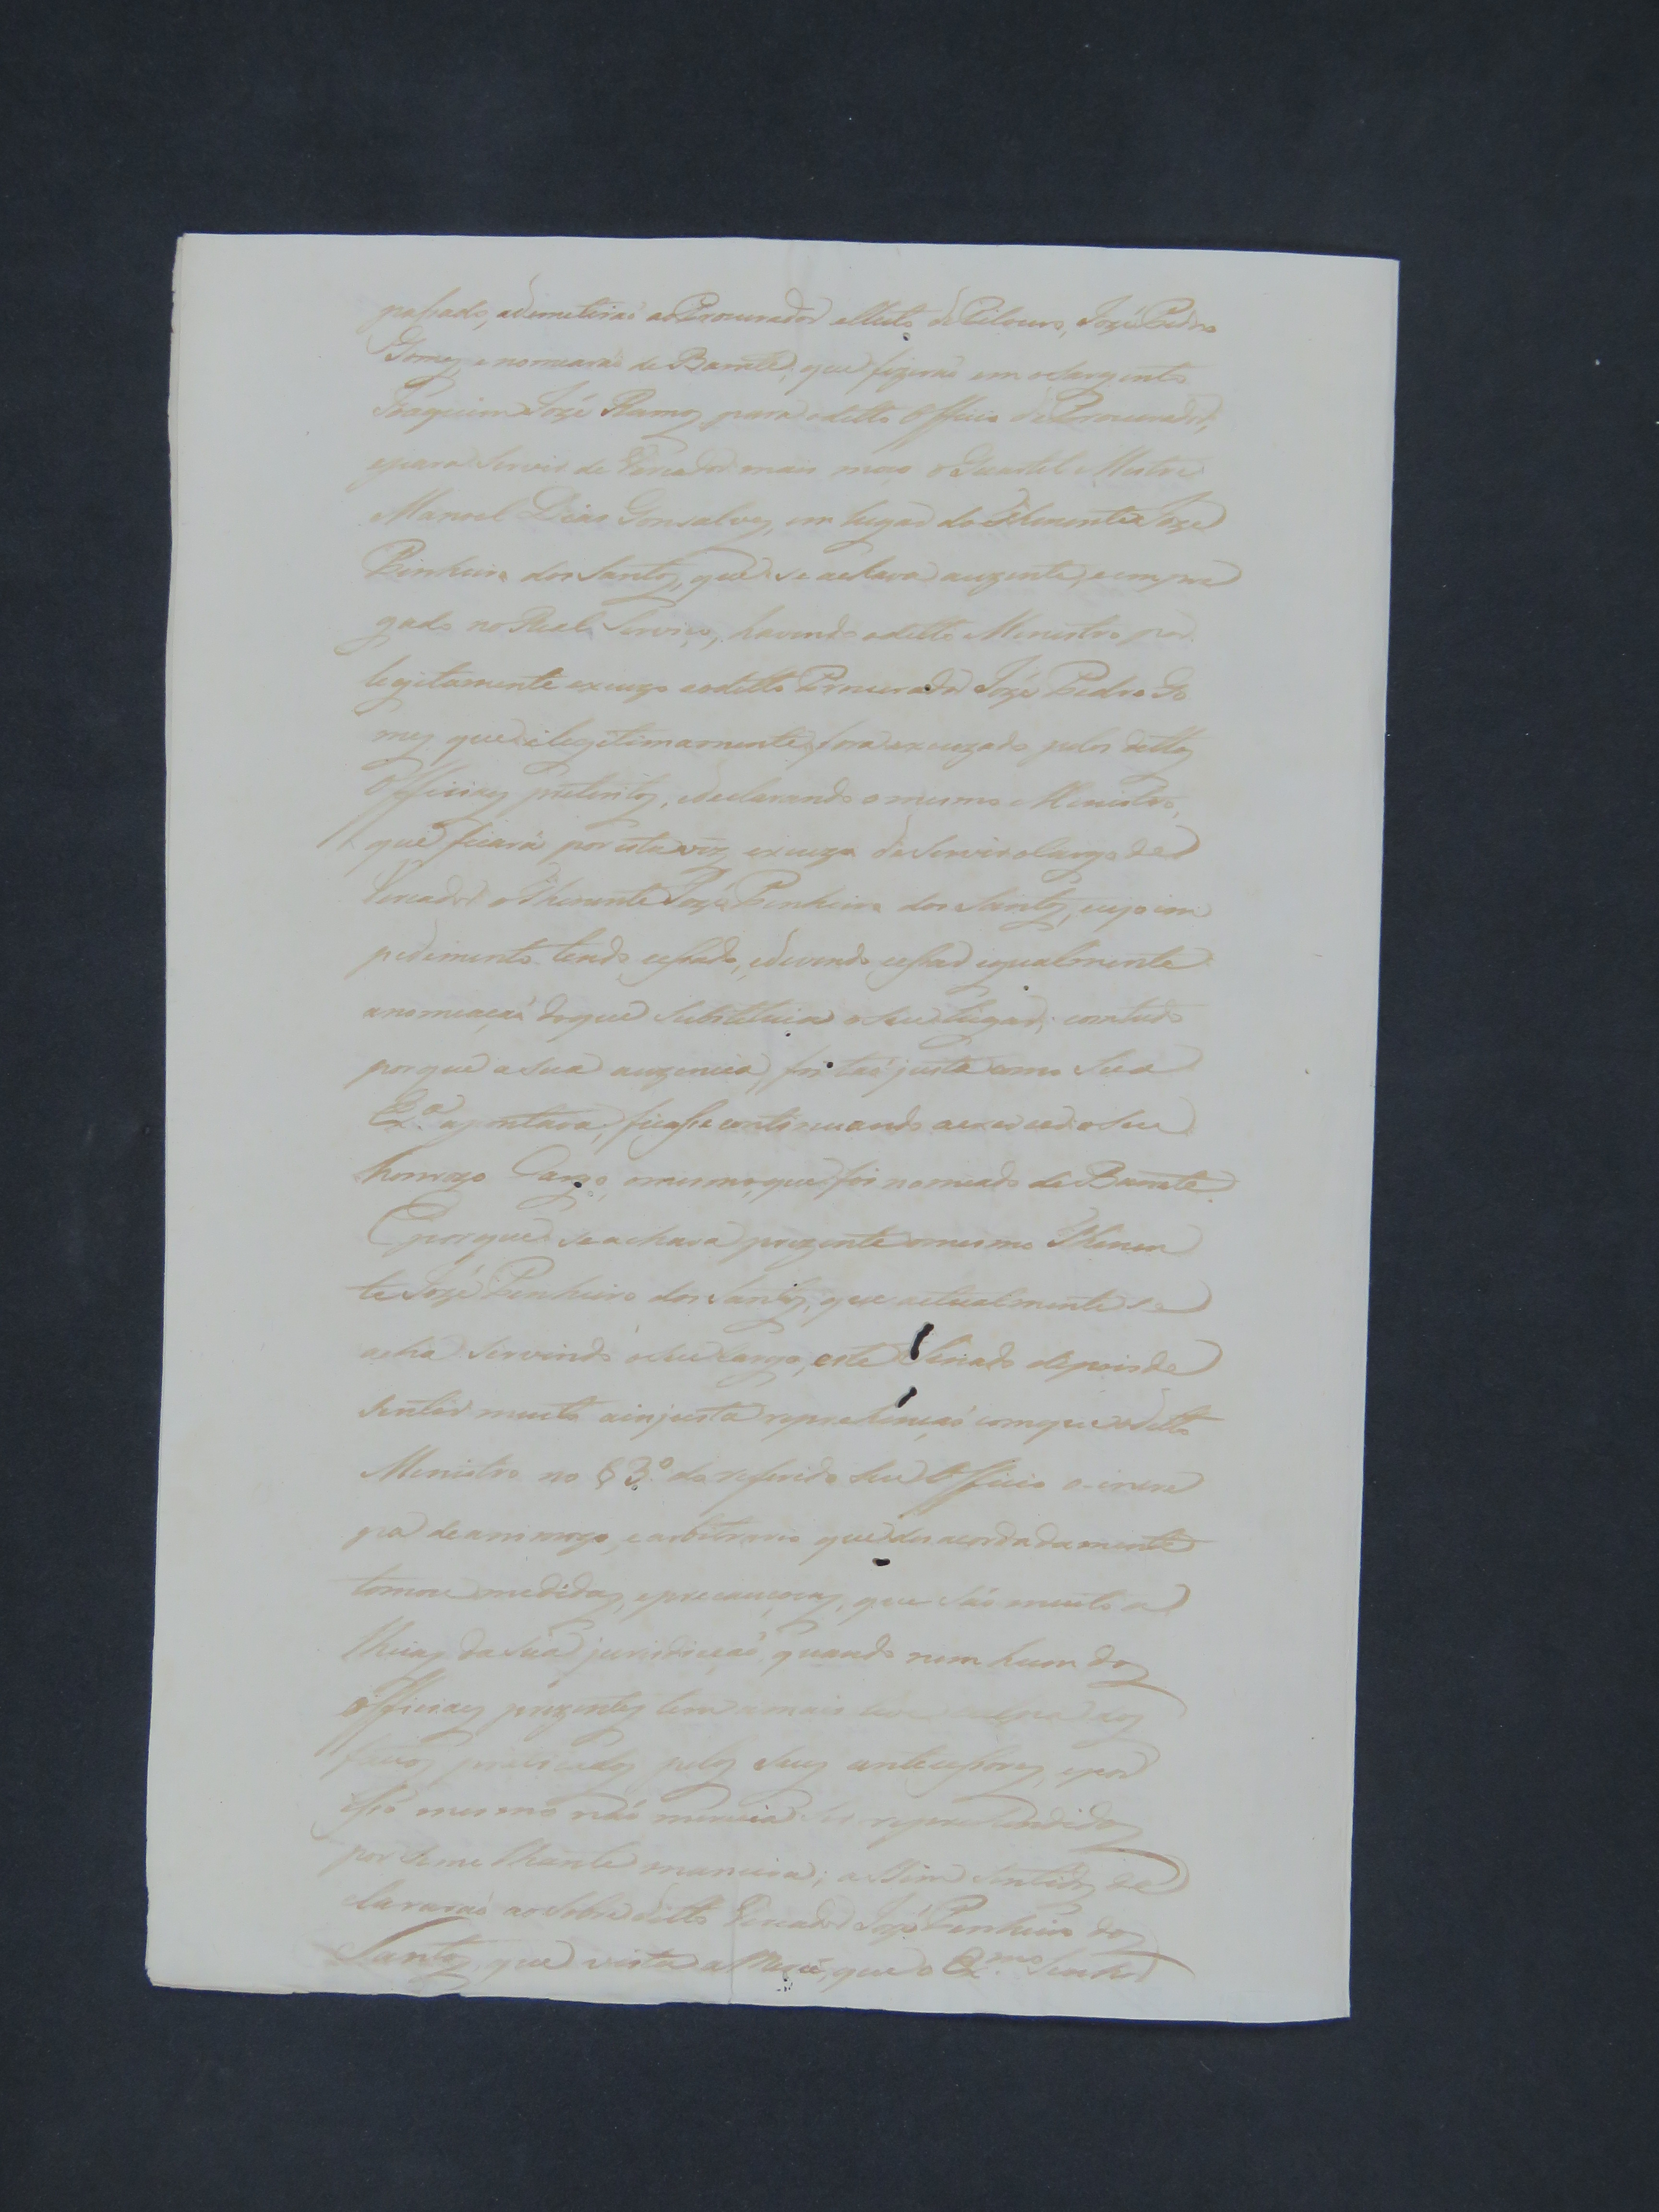 passado, ademetiraõ ao Procurador elleito de Pilouro, Jozé Pedro
Gomes, e nomearaõ de Barrete, que fizeraõ em o Sargento
Joaquim Jozé Ramos para o ditto Officio de Procurador,
e para servir de Vereador mais moço o Quartel Mestre
Manoel Dias Gonsalves, em lugar do Thenente Joze
Pinheiro dos Santos, que se achava auzente, e empre
gado no Real Serviço, havendo o ditto Ministro por
legitamente excuzo ao ditto Procurador Jozé Pedro Go
mes que elegitimamente fora excuzado pelos dittos
Officiaes preteritos, e declarando o mesmo Ministro,
que ficará por esta vez excuza de servir o Cargo de
Vereador o Thenente Jozé Pinheiro dos Santos, cujo im
pedimento tendo cessado, e devendo cessar egualmente
a nomeaçaõ do que substituia o seu lugar; comtudo
porque a sua auzencia, foi taõ justa como Sua
Ex.ª apontava, ficasse continuando a exercer o seu
honrozo Cargo, o mesmo, que foi nomeado de Barrete.
E porque se achava prezente o mesmo Thenen
te Jozé Pinheiro dos Santos, que actualmente se
acha servindo o seu Cargo, este Senado depois de
sentir muito a injusta reprehençaõ com que o ditto
Ministro no § 3.º do referido seu Officio o incre
pa de animozo, e arbitrario que desacordadamente
tomou medidas, e precauçoens, que saõ muito a
lheias da sua jurisdicçaõ quando nem hum dos
Officiaes prezentes tem a mais leve culpa dos
factos praticados pelos seus antecessores, e por
isso mesmo naõ merecia ser reprehendidos
por semelhante maneira; assim sentidos de
claravaõ ao sobreditto Vereador Jozé Pinheiro dos
Santos, que vista a que o Ex.mo Senhor